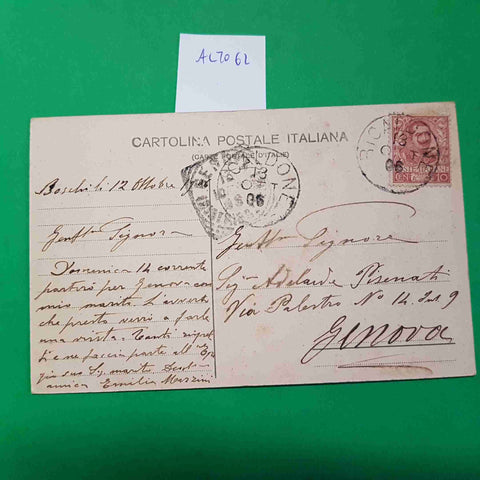 AL7062
CARTOLINA POSTALE ITALIANA
(CARTE POSTALE D'ITALIE)
RICALDONE
13
OTT
06
RICALDONE
13
OTT
06
POSTE ITALIANE
CENT. 10
Boschi li 12 Ottobre
Gentma Signora
Domenica 14 corrente
partirò per Genova con
mio marito. L'avverto
che presto verrò a farle
una visita. Tanti
e ne faccia parte al
suo Sig. marito.
amica Emilia
Gentma Signora
Sig. Adelaide Pisenati
Via Palestro No 14. Int. 9
Genova